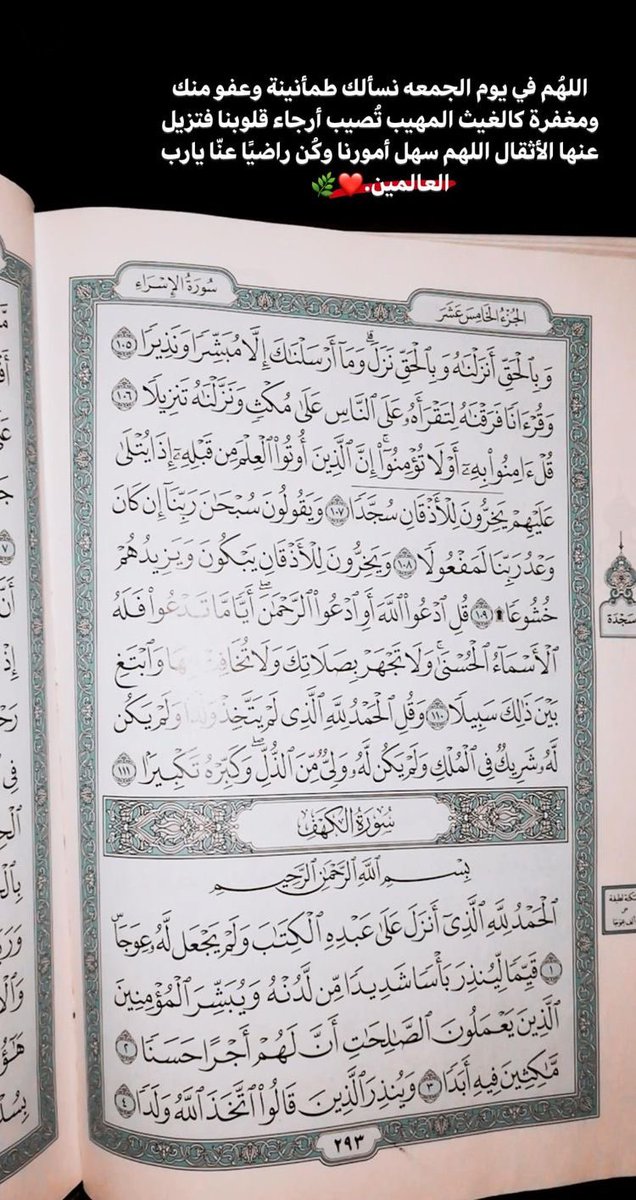 اللهُم في يوم الجمعه نسألك طمأنينة وعفو منك
ومغفرة كالغيث المهيب تُصيب أرجاء قلوبنا فتزيل
عنها الأثقال اللهم سهل أمورنا وكُن راضيًا عنّا يارب
العالمين.❤️🌿
الجزء الخامس عشر
سورة الإسراء
وَبِالْحَقِّ أَنزَلْنَٰهُ وَبِالْحَقِّ نَزَلَ ۗ وَمَا أَرْسَلْنَٰكَ إِلَّا مُبَشِّرًا وَنَذِيرًا ١٠٥
وَقُرْءَانًا فَرَقْنَٰهُ لِتَقْرَأَهُۥ عَلَى النَّاسِ عَلَىٰ مُكْثٍ وَنَزَّلْنَٰهُ تَنزِيلًا ١٠٦
قُلْ ءَامِنُوا بِهِۦٓ أَوْ لَا تُؤْمِنُوٓا ۚ إِنَّ الَّذِينَ أُوتُوا الْعِلْمَ مِن قَبْلِهِۦٓ إِذَا يُتْلَىٰ
عَلَيْهِمْ يَخِرُّونَ لِلْأَذْقَانِ سُجَّدًا ١٠٧ وَيَقُولُونَ سُبْحَٰنَ رَبِّنَآ إِن كَانَ
وَعْدُ رَبِّنَا لَمَفْعُولًا ١٠٨ وَيَخِرُّونَ لِلْأَذْقَانِ يَبْكُونَ وَيَزِيدُهُمْ
خُشُوعًا ۩ ١٠٩ قُلِ ادْعُوا اللَّهَ أَوِ ادْعُوا الرَّحْمَٰنَ ۖ أَيًّا مَّا تَدْعُوا فَلَهُ
الْأَسْمَآءُ الْحُسْنَىٰ ۚ وَلَا تَجْهَرْ بِصَلَاتِكَ وَلَا تُخَافِتْ بِهَا وَابْتَغِ
بَيْنَ ذَٰلِكَ سَبِيلًا ١١٠ وَقُلِ الْحَمْدُ لِلَّهِ الَّذِى لَمْ يَتَّخِذْ وَلَدًا وَلَمْ يَكُن
لَّهُۥ شَرِيكٌ فِى الْمُلْكِ وَلَمْ يَكُن لَّهُۥ وَلِىٌّ مِّنَ الذُّلِّ ۖ وَكَبِّرْهُ تَكْبِيرًا ١١١
سجدة
سورة الكهف
بِسْمِ اللَّهِ الرَّحْمَٰنِ الرَّحِيمِ
الْحَمْدُ لِلَّهِ الَّذِىٓ أَنزَلَ عَلَىٰ عَبْدِهِ الْكِتَٰبَ وَلَمْ يَجْعَل لَّهُۥ عِوَجَا ۜ
١ قَيِّمًا لِّيُنذِرَ بَأْسًا شَدِيدًا مِّن لَّدُنْهُ وَيُبَشِّرَ الْمُؤْمِنِينَ
الَّذِينَ يَعْمَلُونَ الصَّٰلِحَٰتِ أَنَّ لَهُمْ أَجْرًا حَسَنًا ٢
مَّٰكِثِينَ فِيهِ أَبَدًا ٣ وَيُنذِرَ الَّذِينَ قَالُوا اتَّخَذَ اللَّهُ وَلَدًا ٤
٢٩٣